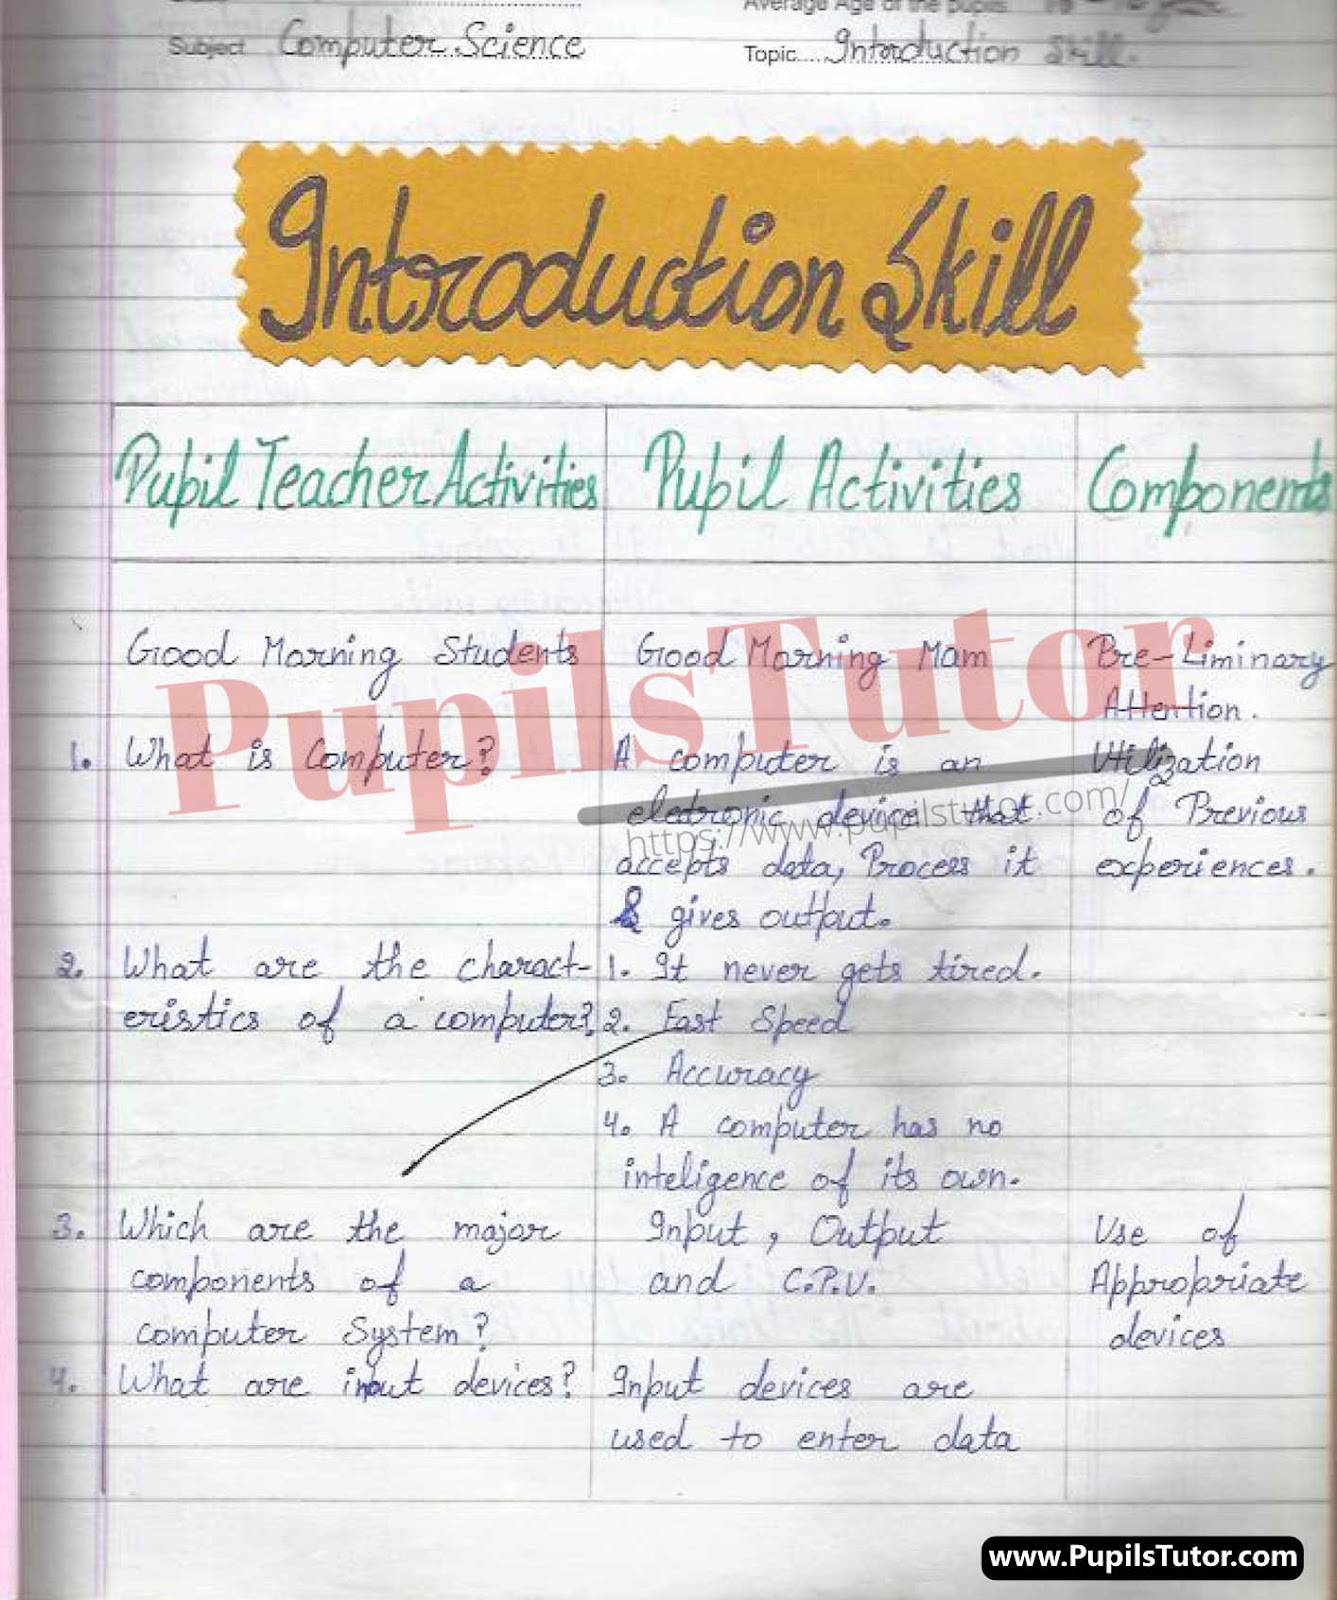 Average Age of the pupils
Subject Computer Science
Topic Introduction Skill.
Introduction Skill
Pupil Teacher Activities Pupil Activities Components
Good Morning Students Good Morning Mam Pre-Liminary
Attention.
1. What is Computer? A computer is an Utilization
eletronic device that of Previous
accepts data, Process it experiences.
& gives output.
2. What are the charact- 1. It never gets tired.
eristics of a computer? 2. Fast Speed
3. Accuracy
4. A computer has no
inteligence of its own.
3. Which are the major Input, Output Use of
components of a and C.P.U. Appropriate
computer System? devices
4. What are input devices? Input devices are
used to enter data
PupilsTutor
https://www.pupilstutor.com/
www.PupilsTutor.com